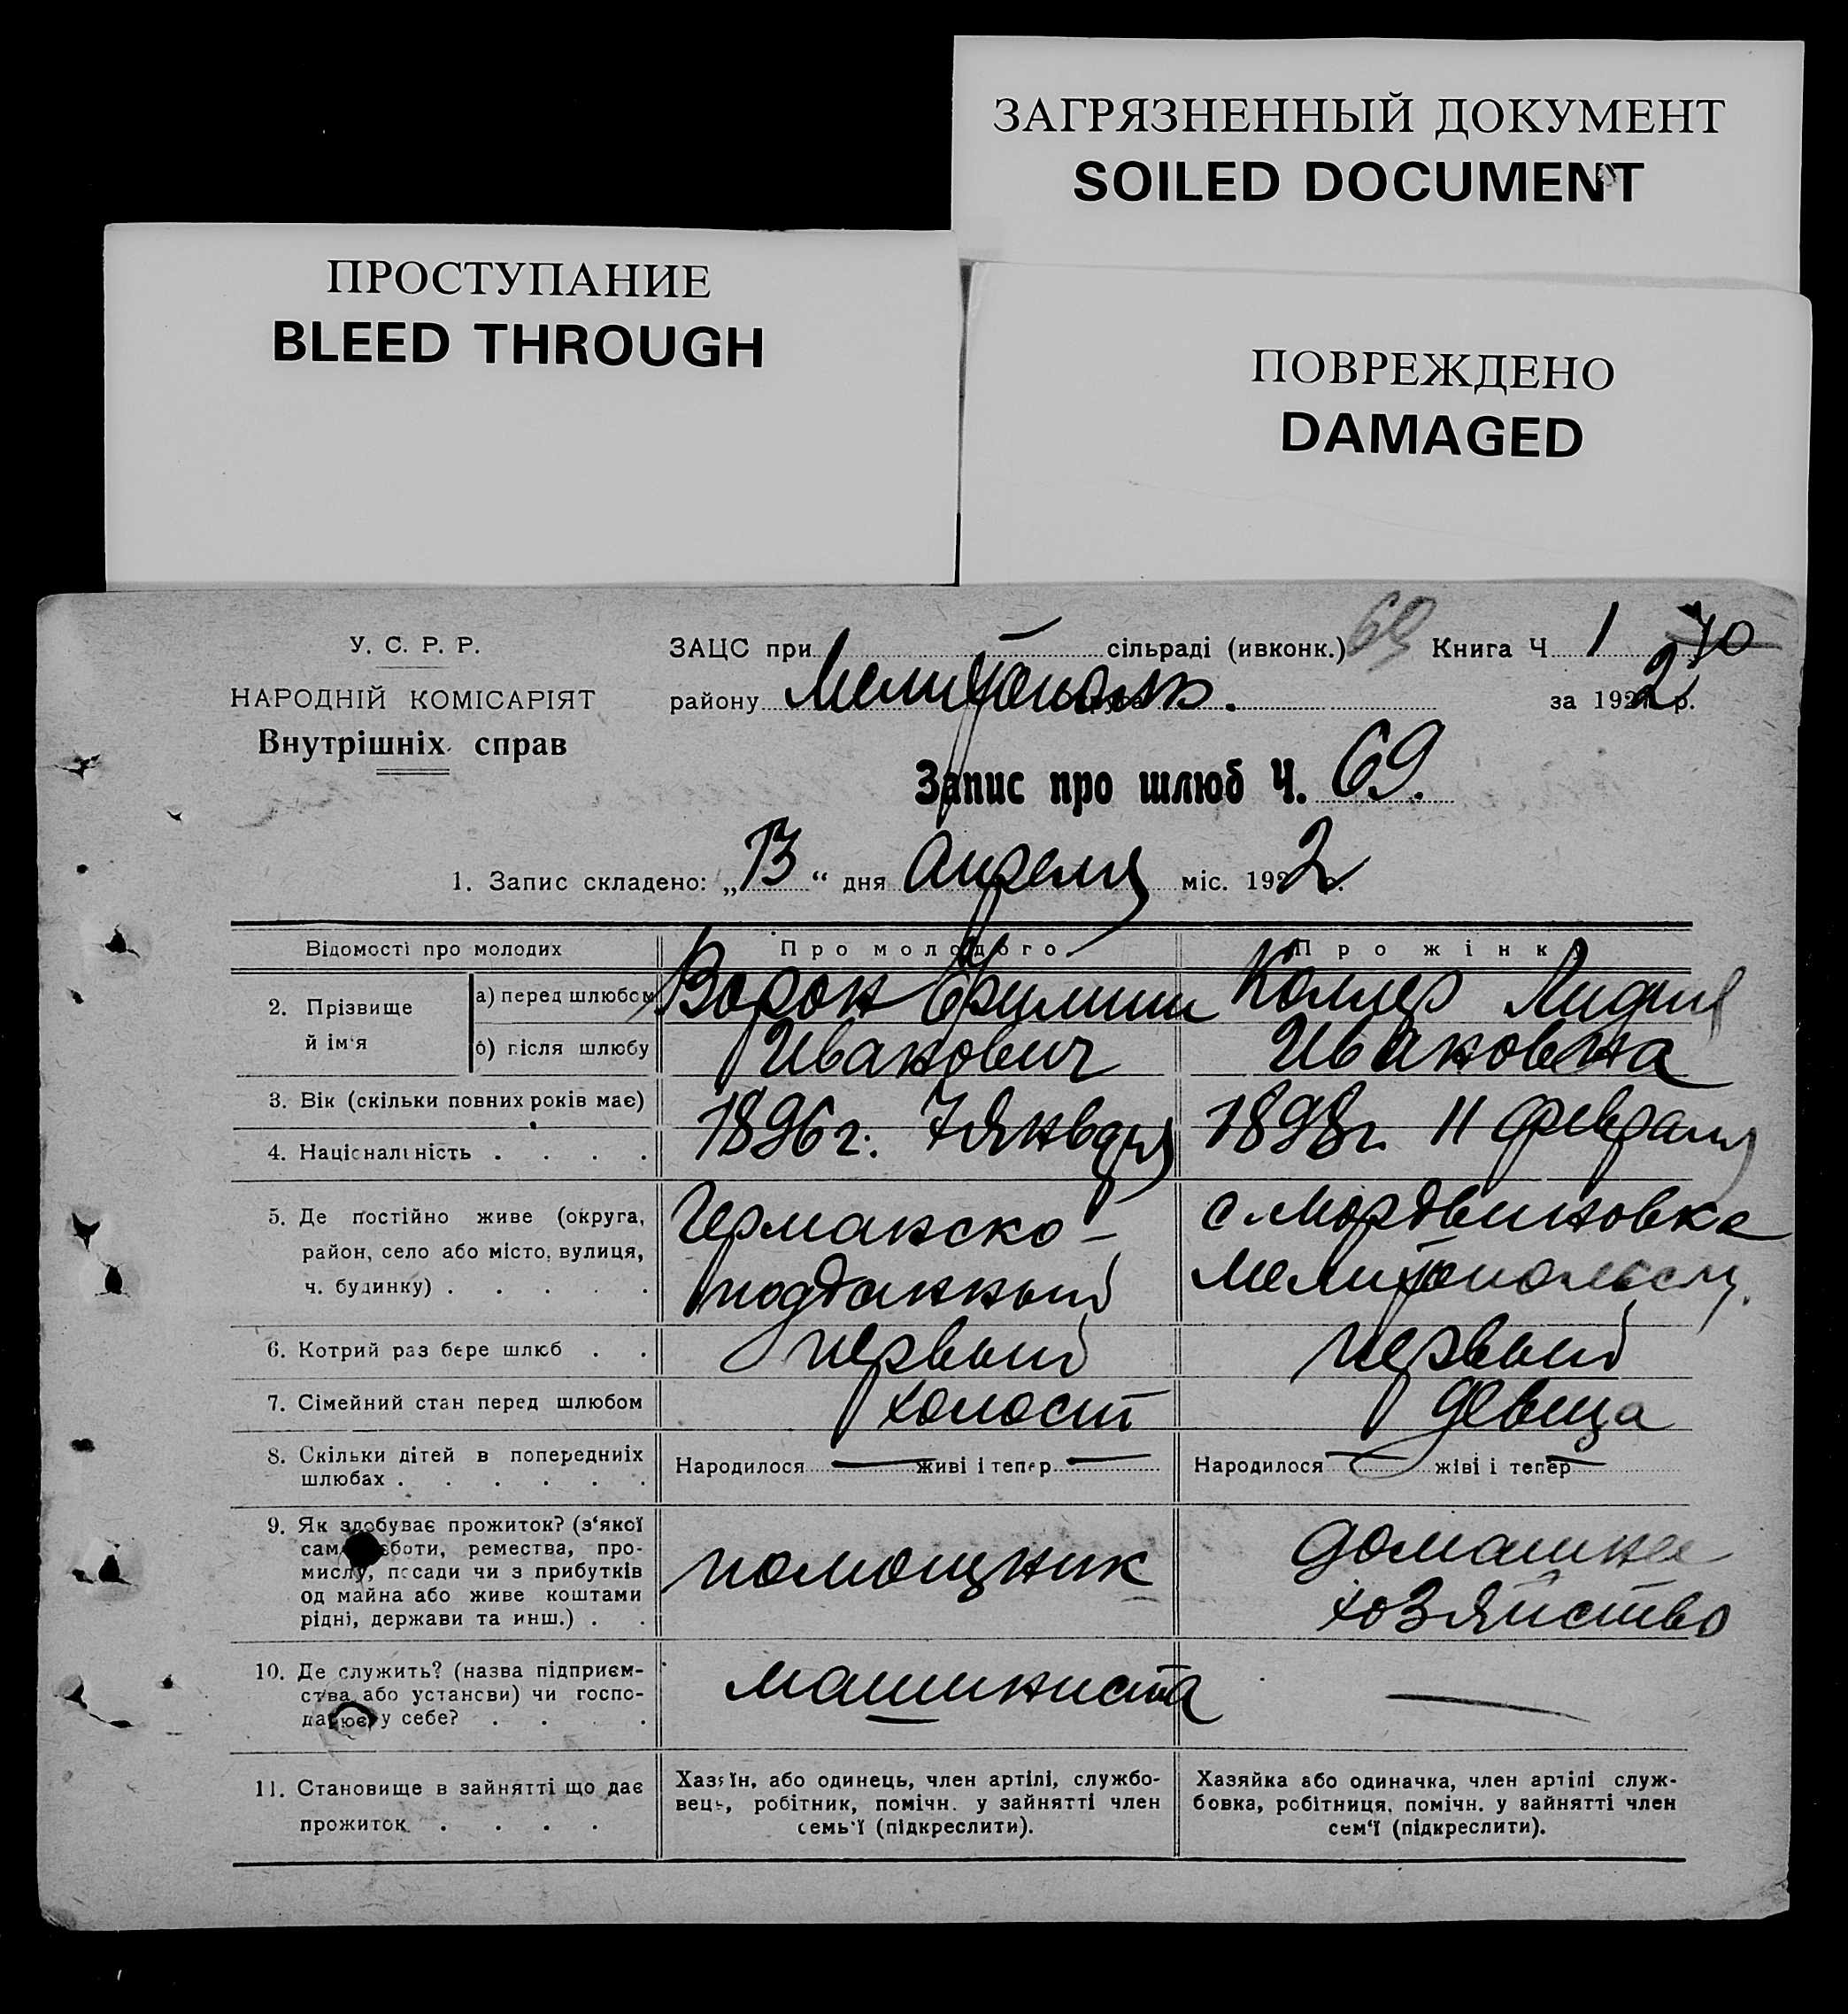 ЗАГРЯЗНЕННЫЙ ДОКУМЕНТ
SOILED DOCUMENT
ПРОСТУПАНИЕ
BLEED THROUGH
ПОВРЕЖДЕНО
DAMAGED
У. С. Р. Р.
НАРОДНІЙ КОМІСАРІЯТ
Внутрішніх справ
ЗАЦС при сільраді (ивконк.) 69 Книга Ч 1 70
району за 1922 р.
Запис про шлюб Ч. 69.
1. Запис складено: „13“ дня Апреля міс. 1922 р.
Відомості про молодих Про молодого Про жінк
2. Прізвище й ім'я а) перед шлюбом Ворон Коллер Лидия
б) після шлюбу Иванович Ивановна
3. Вік (скільки повних років має)
1896 г. 7 Января 1898 г. 11 февраля
4. Національність . . . .
5. Де постійно живе (округа, Германско- с. Мордвиновка
район, село або місто, вулиця,
ч. будинку) . . . . . подданный
6. Котрий раз бере шлюб . . первый первый
7. Сімейний стан перед шлюбом холост девица
8. Скільки дітей в попередниіх Народилося — живі і тепер — Народилося — жіві і тепер —
шлюбах . . . . . .
9. Як здобуває прожиток? (з'якої
саме роботи, ремества, про- помощник домашнее
мислу, посади чи з прибутків
од майна або живе коштами хозяйство
рідні, держави та инш.) . .
10. Де служить? (назва підприєм- машиниста —
ства або установи) чи госпо-
дарює у себе? . . . .
11. Становище в зайнятті що дає Хазяїн, або одинець, член артілі, службо- Хазяйка або одиначка, член артілі служ-
прожиток . . . . вець, робітник, помічн. у зайнятті член бовка, робітниця, помічн. у зайнятті член
семь'ї (підкреслити). сем'ї (підкреслити).